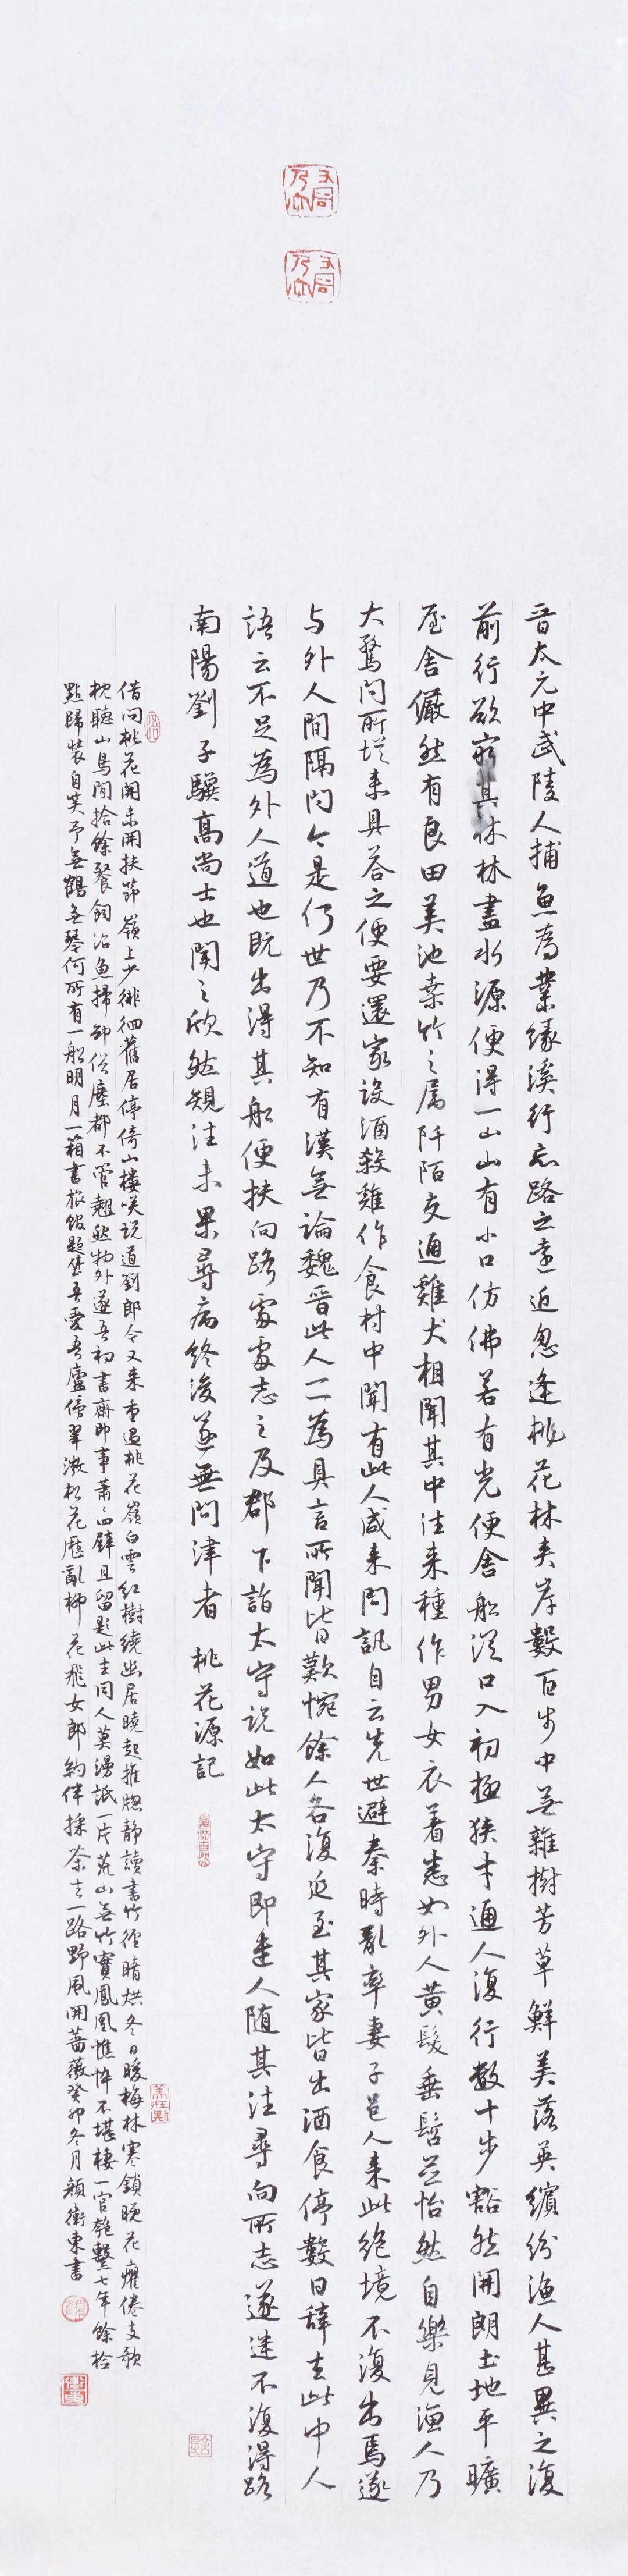 晉太元中武陵人捕魚為業緣溪行忘路之遠近忽逢桃花林夹岸數百步中無雜樹芳草鮮美落英繽紛漁人甚異之復
前行欲窮其林林盡水源便得一山山有小口仿佛若有光便舍船從口入初極狹才通人復行数十步豁然開朗土地平曠
屋舍儼然有良田美池桑竹之属阡陌交通雞犬相聞其中往来種作男女衣着悉如外人黄髮垂髫並怡然自樂見漁人乃
大驚问所從来具荅之便要還家设酒殺雞作食村中聞有此人咸来問訊自云先世避秦時亂率妻子邑人来此绝境不復出焉遂
与外人間隔问今是何世乃不知有漢無論魏晋此人一一為具言所聞皆歎惋餘人各復延至其家皆出酒食停數日辞去此中人
語云不足為外人道也既出得其船便扶向路處處志之及郡下詣太守说如此太守即遣人随其往尋向所志遂迷不復得路
南陽劉子驥髙尚士也聞之欣然規往未果尋病终後遂無問津者 桃花源記
借问桃花開未開扶笻嶺上少徘徊舊居停倚山樓笑说道劉郎今又来重過桃花嶺白雲红樹繞幽居曉起推窗静讀書竹徑晴烘冬日暖梅林寒鎖晚花癯倦支歌
枕聽山鳥間拾餘餐飼沼魚掃卻俗塵都不管翹然物外遂吾初書齋即事萧萧四壁且留題此去同人莫漫詆一片荒山無竹實鳳凰憔悴不堪棲一官匏繫七年餘檢
點歸裝自笑予無鶴無琴何所有一船明月一箱書旅館題壁吾愛吾廬傍翠微松花歷亂柳花飛女郎約伴採茶去一路野風開薔薇癸卯冬月顏衛東書